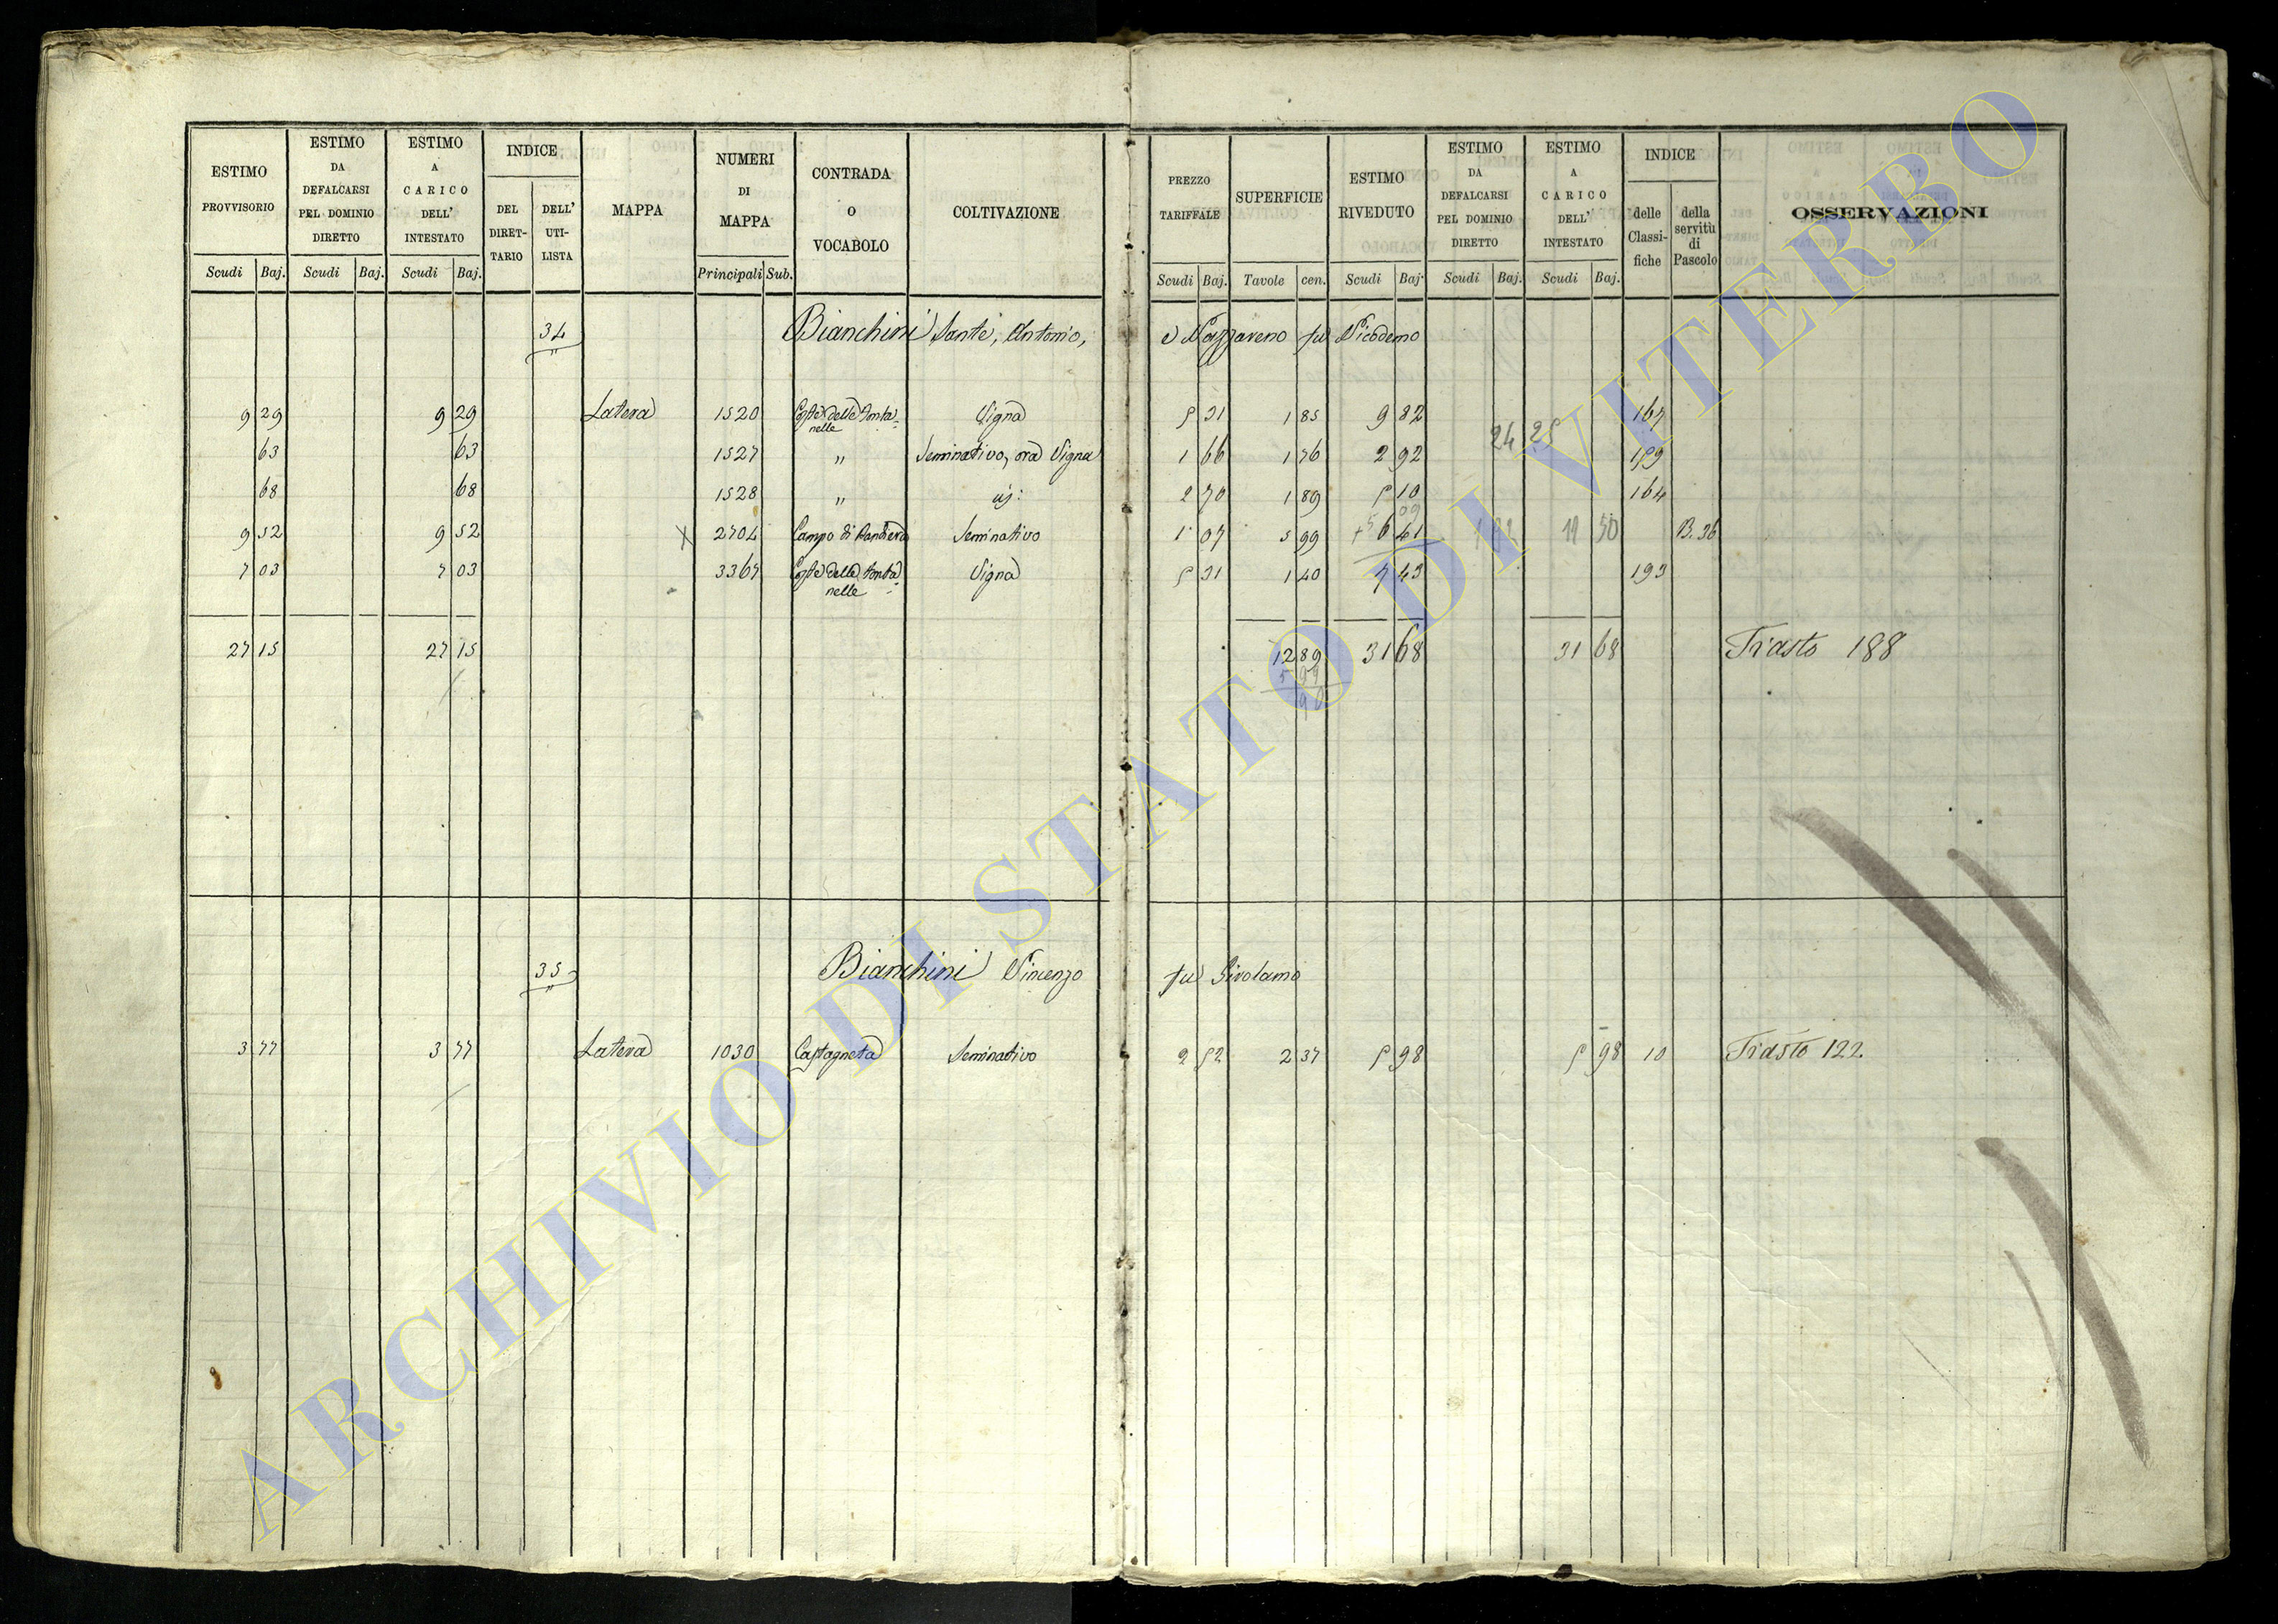 ESTIMO PROVVISORIO | ESTIMO DA DEFALCARSI PEL DOMINIO DIRETTO | ESTIMO A CARICO DELL' INTESTATO | INDICE DEL DIRET-TARIO | DELL' UTI-LISTA | MAPPA | NUMERI DI MAPPA | CONTRADA O VOCABOLO | COLTIVAZIONE | PREZZO TARIFFALE | SUPERFICIE | ESTIMO RIVEDUTO | ESTIMO DA DEFALCARSI PEL DOMINIO DIRETTO | ESTIMO A CARICO DELL' INTESTATO | INDICE delle Classi-fiche | della servitù di Pascolo | OSSERVAZIONI
Scudi Baj. | Scudi Baj. | Scudi Baj. | Principali Sub. | Scudi Baj. | Tavole cen. | Scudi Baj. | Scudi Baj. | Scudi Baj.
34 Bianchini Sante, Antonio, e Nazzareno fu Nicodemo
9 29 | 9 29 | Latera | 1520 | Coste delle Fonta=nelle | Vigna | 5 31 | 1 85 | 9 82 | 164
24 25
63 | 63 | 1527 | " | Seminativo, ora Vigna | 1 66 | 1 76 | 2 92 | 159
68 | 68 | 1528 | " | 2 70 | 1 89 | 5 10 | 164
9 52 | 9 52 | X 2704 | Campo di | Seminativo | 1 07 | 5 99 | 6 41 | 19 50 | B. 36
7 03 | 7 03 | 3367 | Coste delle Fonta=nelle | Vigna | 5 31 | 1 40 | 7 43 | 193
27 15 | 27 15 | 12 89 | 31 68 | 31 68 | Trasto 188
5 99
35 Bianchini Vincenzo fu Girolamo
3 77 | 3 77 | Latera | 1030 | Castagneta | Seminativo | 2 52 | 2 37 | 5 98 | 5 98 | 10 | Trasto 122.
ARCHIVIO DI STATO DI VITERBO